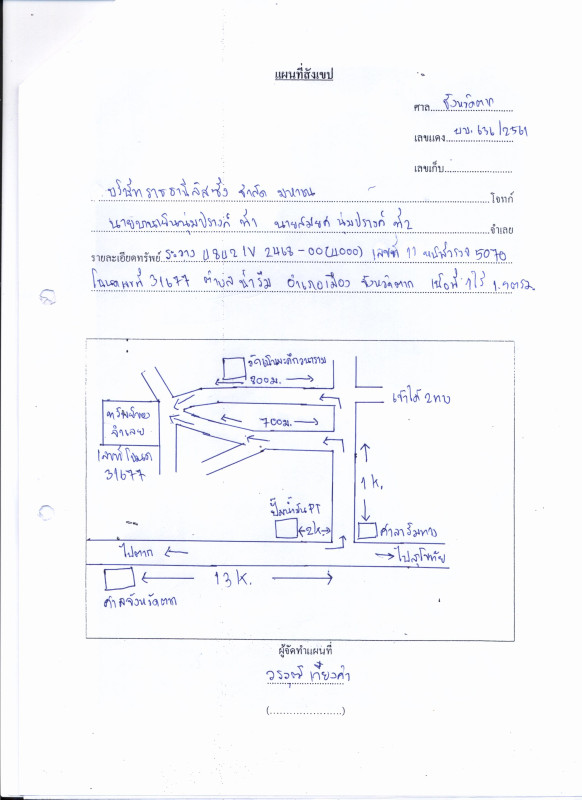 แผนที่สังเขป
ศาล จังหวัดตาก
เลขแดง ผบ. 636/2561
เลขเก็บ
บริษัท ราชธานีลิสซิ่ง จำกัด มหาชน โจทก์
นุ่มปรางค์ ที่1 นายสมยศ นุ่มปรางค์ ที่2 จำเลย
รายละเอียดทรัพย์ ระวาง 4842 IV 2468-00(4000) เลขที่ 11 หน้าสำรวจ 5070
โฉนดเลขที่ 31677 ตำบลน้ำรึม อำเภอเมือง จังหวัดตาก เนื้อที่ 1ไร่
800ม.
เข้าได้ 2ทาง
ทรัพย์ของ
จำเลย
700ม.
เลขที่โฉนด
31677
1 K.
ปั๊มน้ำมัน PT
2K.
ศาลาริมทาง
ไปตาก
ไปสุโขทัย
13 K.
ศาลจังหวัดตาก
ผู้จัดทำแผนที่
(.....................)